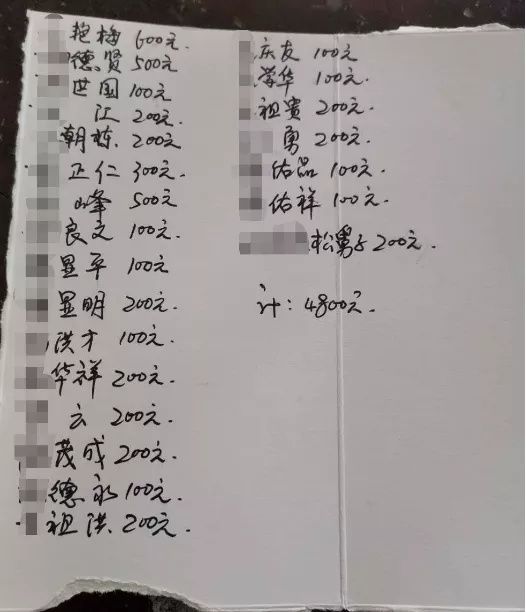 艳梅 600元.
德贤 500元
世国 100元
江 200元.
朝栋 200元.
正仁 300元.
山峰 500元
良文 100元.
显平 100元
显明 200元.
洪才 100元.
华祥 200元.
云 200元.
茂成 200元.
德永 100元.
祖洪 200元.
庆友 100元
荣华 100元.
祖贵 200元.
勇 200元.
佑品 100元.
佑祥 100元.
松舅子 200元.
计: 4800元.